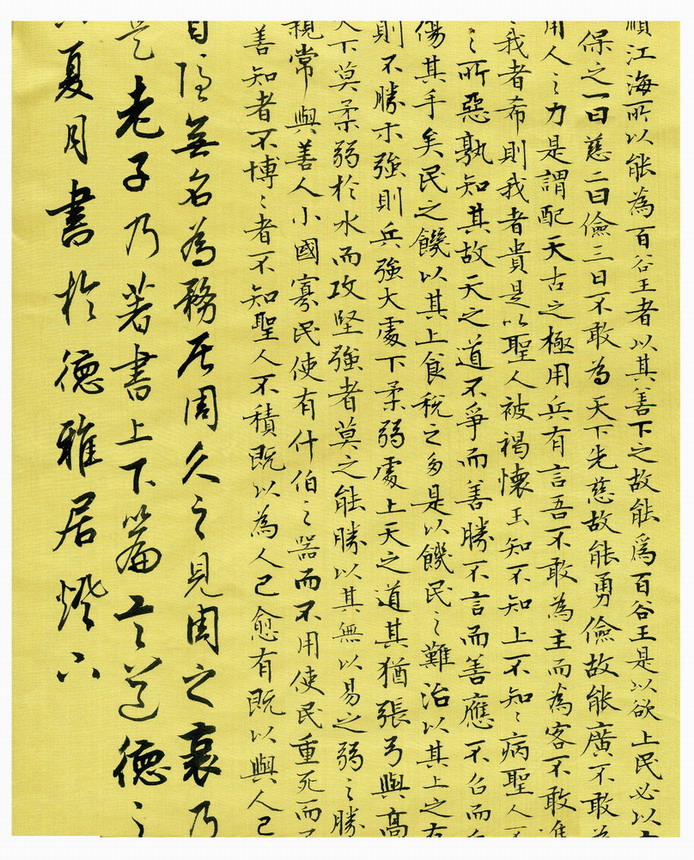 順江海所以能為百谷王者以其善下之故能為百谷王是以欲上民必以
保之一曰慈二曰儉三曰不敢為天下先慈故能勇儉故能廣不敢為
用人之力是謂配天古之極用兵有言吾不敢為主而為客不敢進
我者希則我者貴是以聖人被褐懷玉知不知上不知〻病聖人不
之所惡孰知其故天之道不爭而善勝不言而善應不召而自
傷其手矣民之饑以其上食稅之多是以饑民之難治以其上之有
則不勝木強則兵強大處下柔弱處上天之道其猶張弓與高
天下莫柔弱於水而攻堅強者莫之能勝以其無以易之弱之勝
親常與善人小國寡民使有什伯之器而不用使民重死而不
善知者不博〻者不知聖人不積既以為人己愈有既以與人己
自隱無名為務居周久之見周之衰乃
是老子乃著書上下篇言道德之
夏月書於德雅居燈下